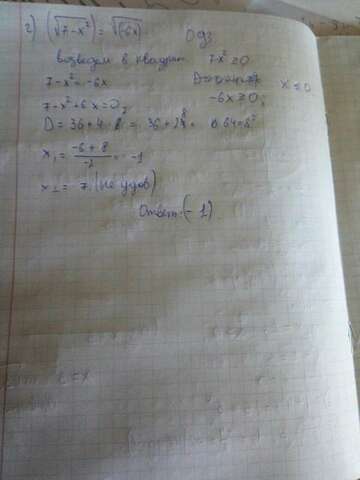 2) (√7-x²) = √(-6x) ОДЗ
возведём в квадрат 7-x² ≥ 0
7-x² = -6x
-6x ≥ 0, x ≤ 0
7-x²+6x=0,
D = 36+4· = 36+28 = 64=8²
x₁ = -6+8/-2 = -1
x₂ = 7 (не удов)
Ответ: (-1)